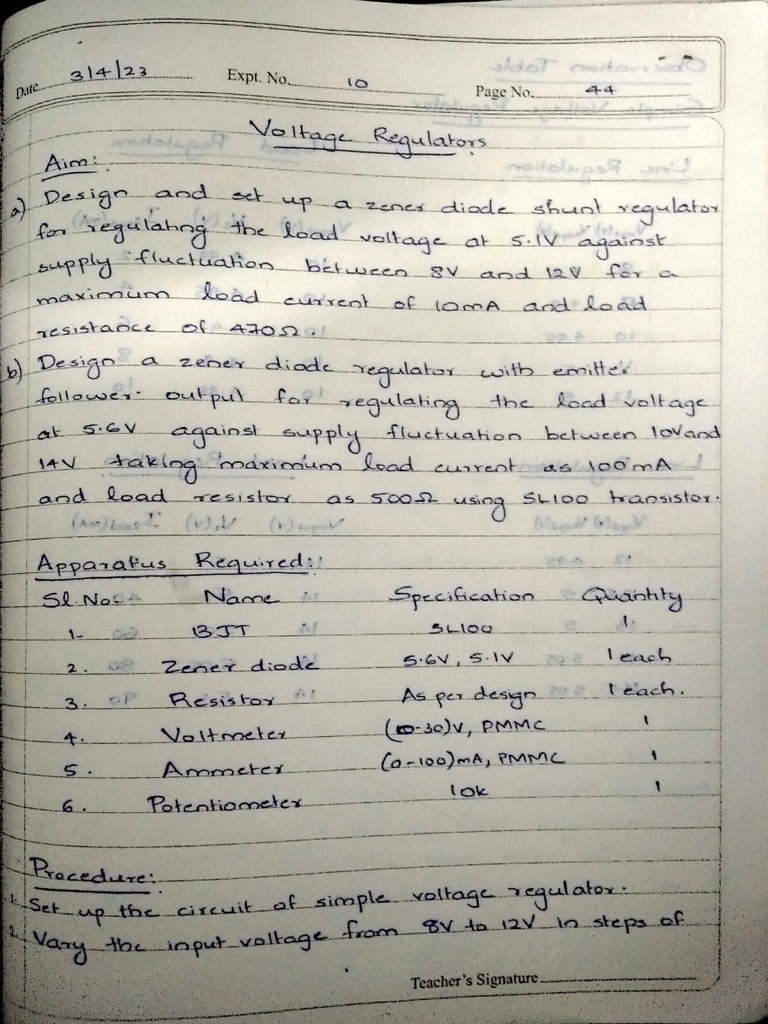 Date 3/4/23 Expt. No. 10 Page No. 44
Voltage Regulators
Aim:
a) Design and set up a zener diode shunt regulator
for regulating the load voltage at 5.1V against
supply fluctuation between 8V and 12V for a
maximum load current of 10mA and load
resistance of 470Ω.
b) Design a zener diode regulator with emitter
follower output for regulating the load voltage
at 5.6V against supply fluctuation between 10V and
14V taking maximum load current as 100mA
and load resistor as 500Ω using SL100 transistor.
Apparatus Required:
Sl. No. Name Specification Quantity
1. BJT SL100 1
2. Zener diode 5.6V, 5.1V 1 each
3. Resistor As per design 1 each.
4. Voltmeter (0-30)V, PMMC 1
5. Ammeter (0-100)mA, PMMC 1
6. Potentiometer 10k 1
Procedure:
1. Set up the circuit of simple voltage regulator.
2. Vary the input voltage from 8V to 12V in steps of
Teacher's Signature